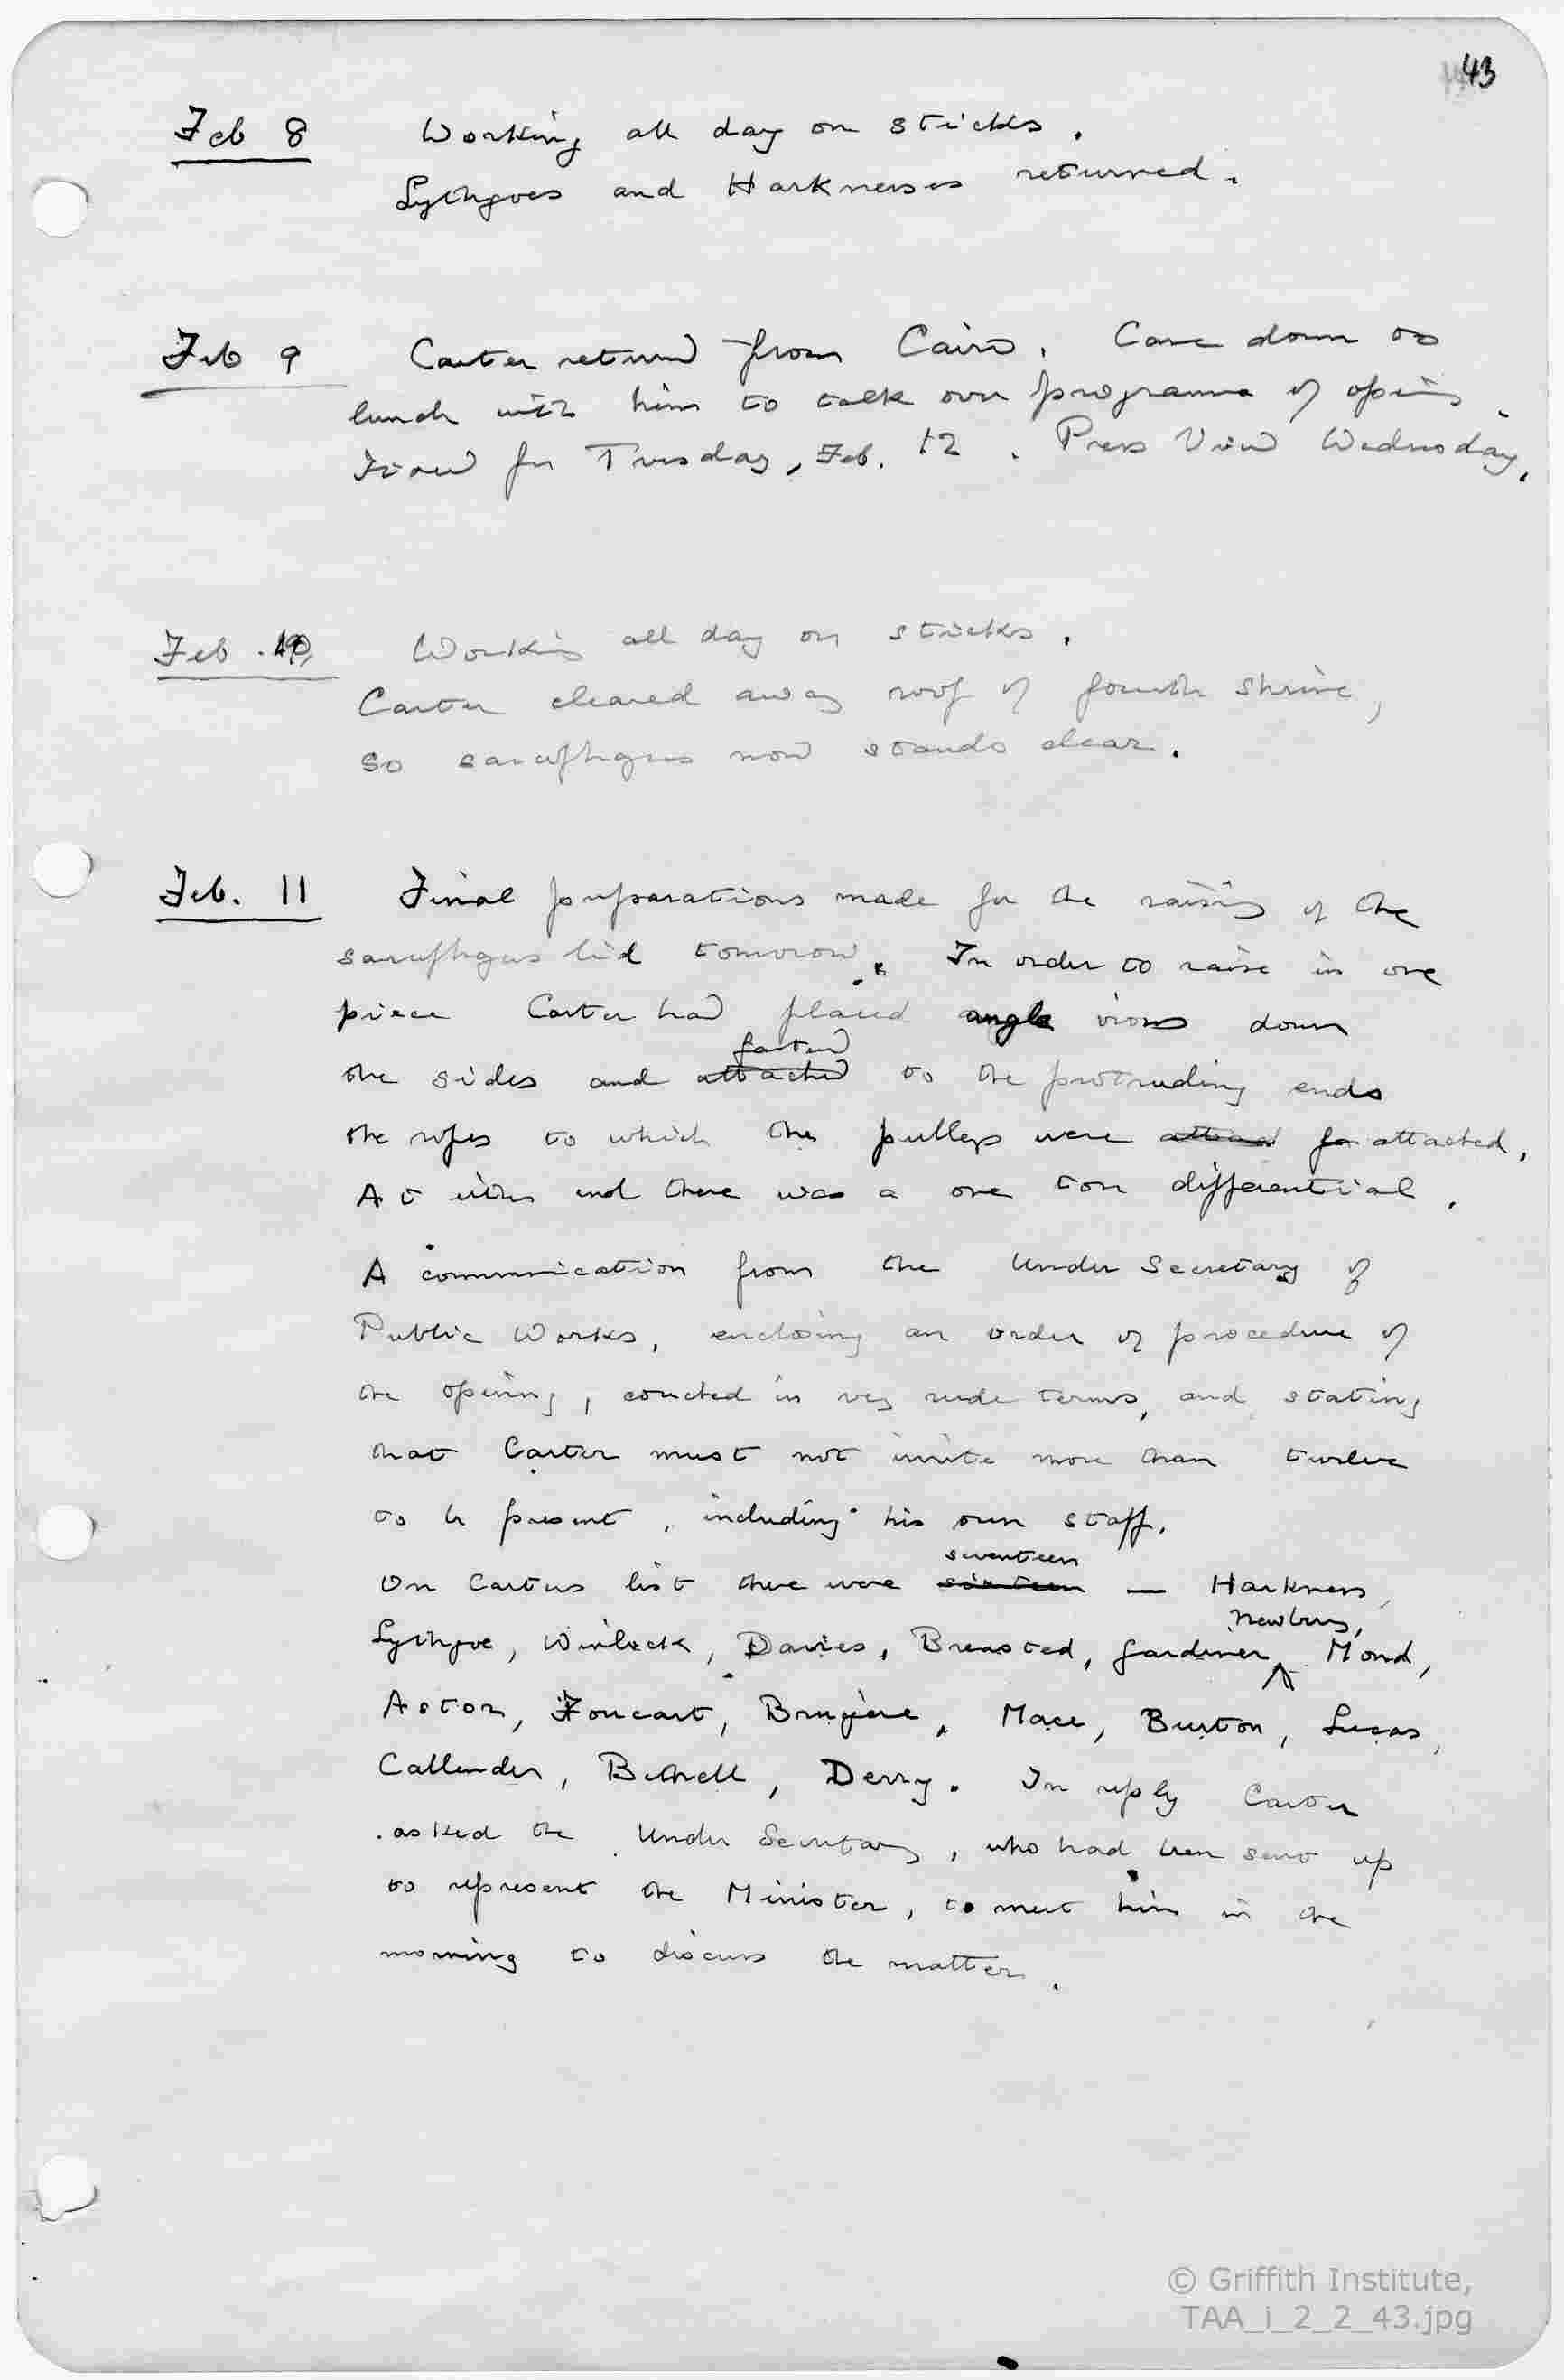 43
Feb 8 Working all day on sticks.
Lythgoes and Harknesses returned.
Feb 9 Carter returned from Cairo. Came down to
lunch with him to talk over programme of opening.
Fixed for Tuesday, Feb. 12. Press View Wednesday.
Feb. 10, Working all day on sticks.
Carter cleared away roof of fourth shrine,
so sarcophagus now stands clear.
Feb. 11 Final preparations made for the raising of the
sarcophagus lid tomorrow. In order to raise in one
piece Carter had placed angle irons down
fastened
the sides and attached to the protruding ends
the ropes to which the pulleys were attached for attached.
At either end there was a one ton differential.
A communication from the Under Secretary of
Public Works, enclosing an order of procedure of
the opening, couched in very rude terms, and stating
that Carter must not invite more than twelve
to be present, including his own staff.
seventeen
On Carters list there were sixteen — Harkness,
Newberry,
Lythgoe, Winlock, Davies, Breasted, Gardiner, Mond,
Astor, Foucart, Bruyère, Mace, Burton, Lucas,
Callender, Bethell, Derry. In reply Carter
asked the Under Secretary, who had been sent up
to represent the Minister, to meet him in the
morning to discuss the matter.
© Griffith Institute,
TAA_i_2_2_43.jpg